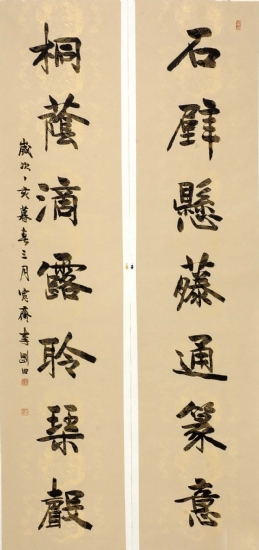 石壁懸藤通篆意
桐蔭滴露聆琴聲
歲次丁亥暮春三月寬齋李剛田